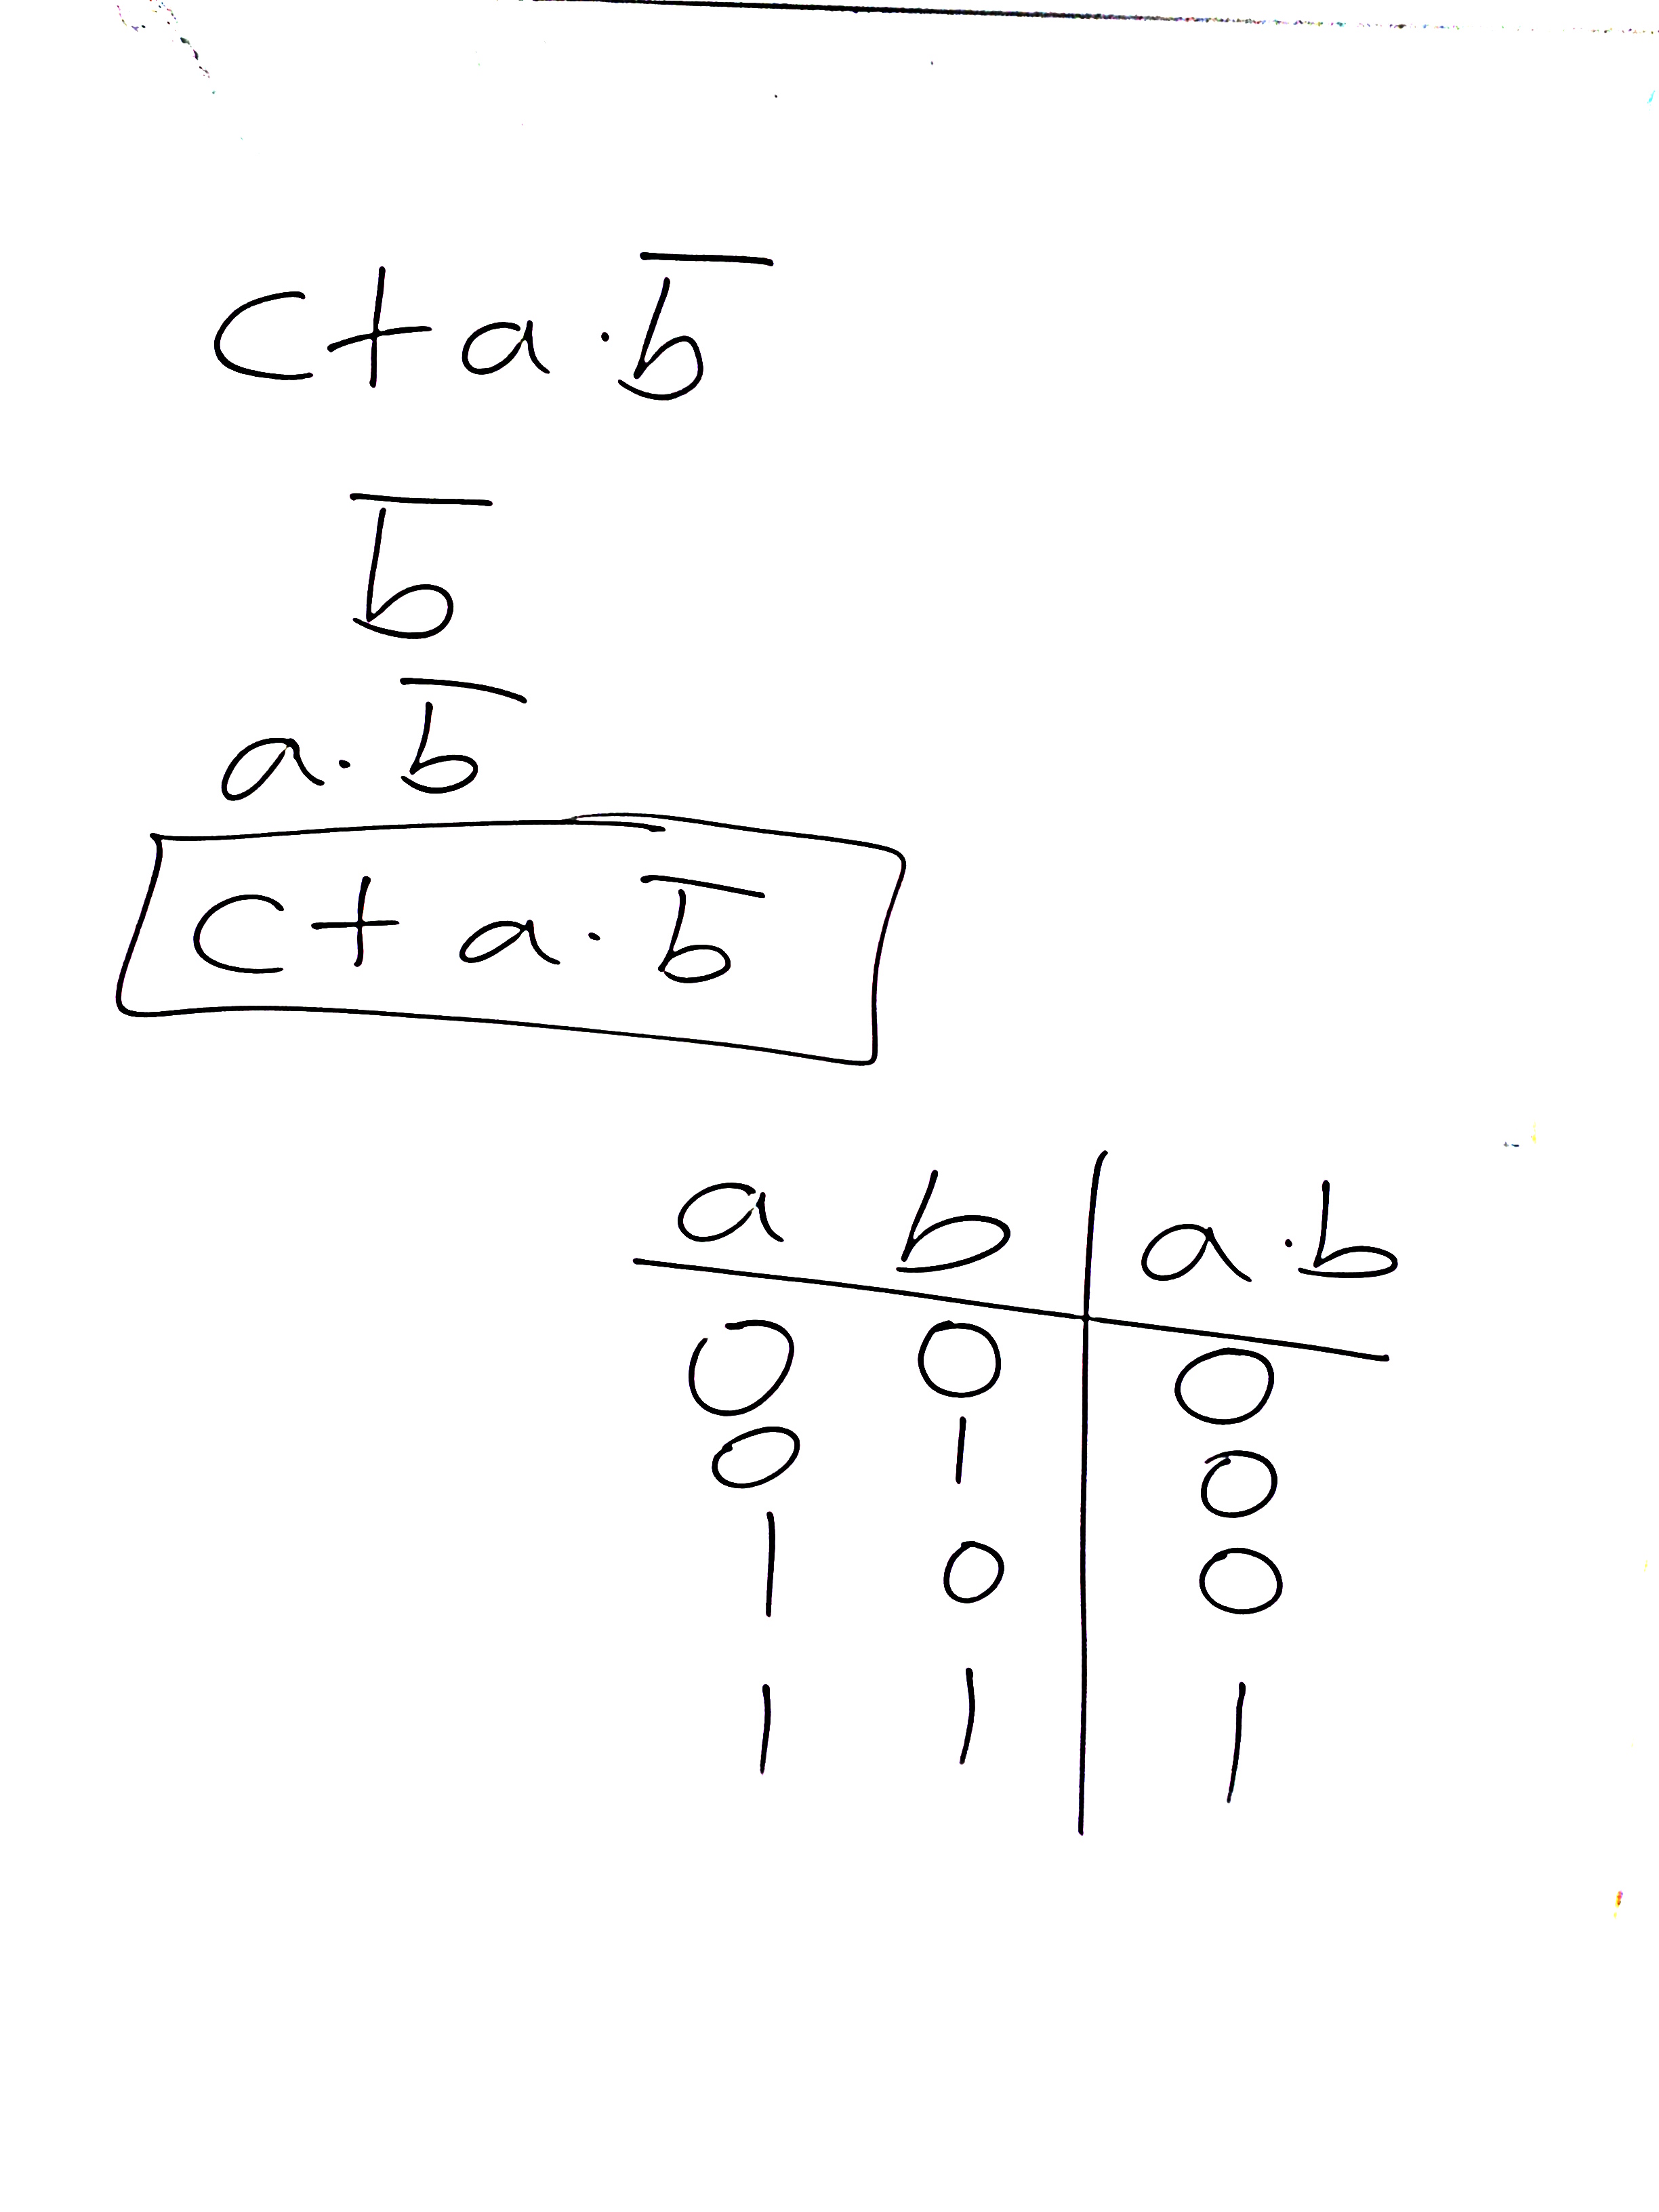 c + a · b̅
b̅
a · b̅
c + a · b̅
a b a · b
0 0 0
0 1 0
1 0 0
1 1 1